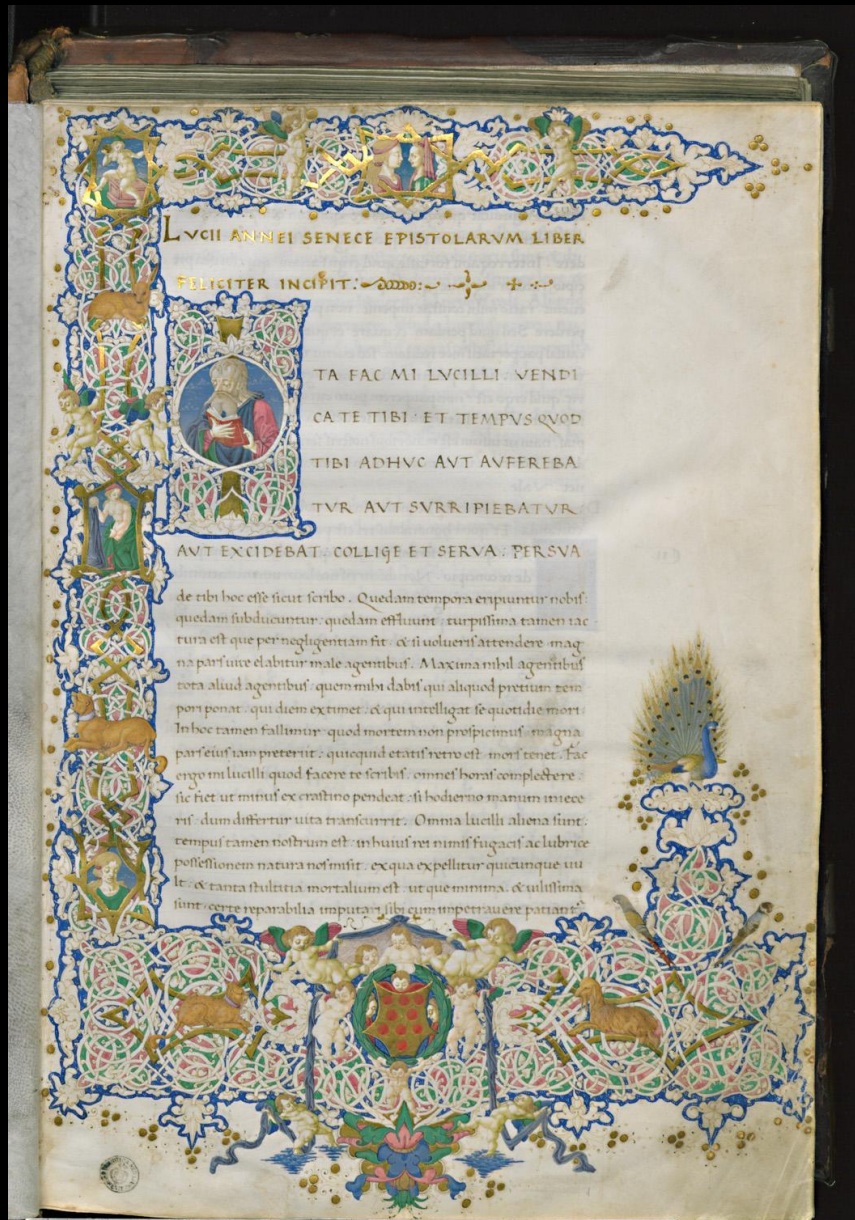 LVCII ANNEI SENECE EPISTOLARVM LIBER
FELICITER INCIPIT:
TA FAC MI LVCILLI: VENDI
CA TE TIBI: ET TEMPVS QVOD
TIBI ADHVC AVT AVFEREBA
TVR AVT SVRRIPIEBATVR
AVT EXCIDEBAT: COLLIGE ET SERVA: PERSVA
de tibi hoc esse sicut scribo. Quedam tempora eripiuntur nobis:
quedam subducuntur: quedam effluunt: turpissima tamen iac
tura est que per negligentiam fit. & si volueris attendere mag
na pars vite elabitur male agentibus. Maxima nihil agentibus
tota aliud agentibus. quem mihi dabis qui aliquod pretium tem
pori ponat. qui diem extimet. & qui intelligat se quotidie mori.
In hoc tamen fallimur. quod mortem non prospicimus. magna
pars eius iam preteriit. quicquid etatis retro est. mors tenet. Fac
ergo mi lucilli quod facere te scribis. omnes horas complectere.
sic fiet ut minus ex crastino pendeat. si hodierno manum iniece
ris. dum differtur uita transcurrit. Omnia lucilli aliena sunt.
tempus tamen nostrum est. in huius rei nimis fugacis ac lubrice
possessionem natura nos misit. ex qua expellitur quicunque uu
lt. & tanta stultitia mortalium est. ut que minima. & uilissima
sunt. certe reparabilia imputari sibi cum impetrauere patiantᷣ